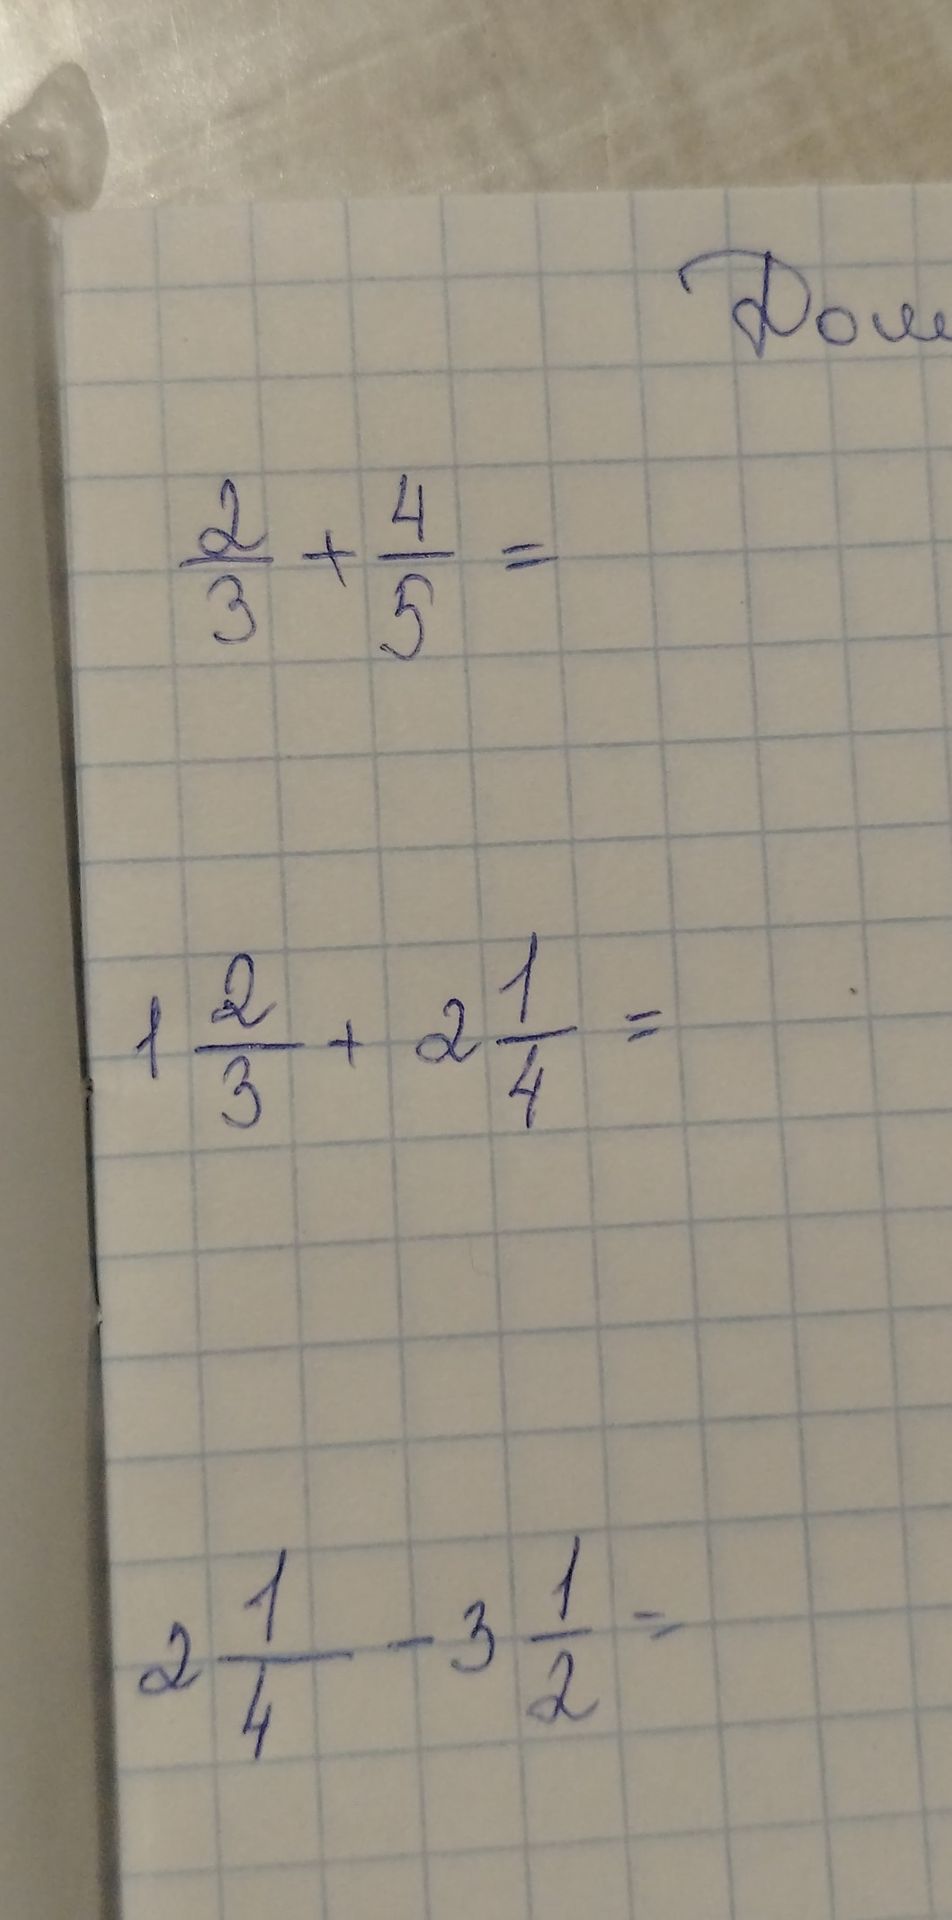 Дом
2/3 + 4/5 =
1 2/3 + 2 1/4 =
2 1/4 - 3 1/2 =